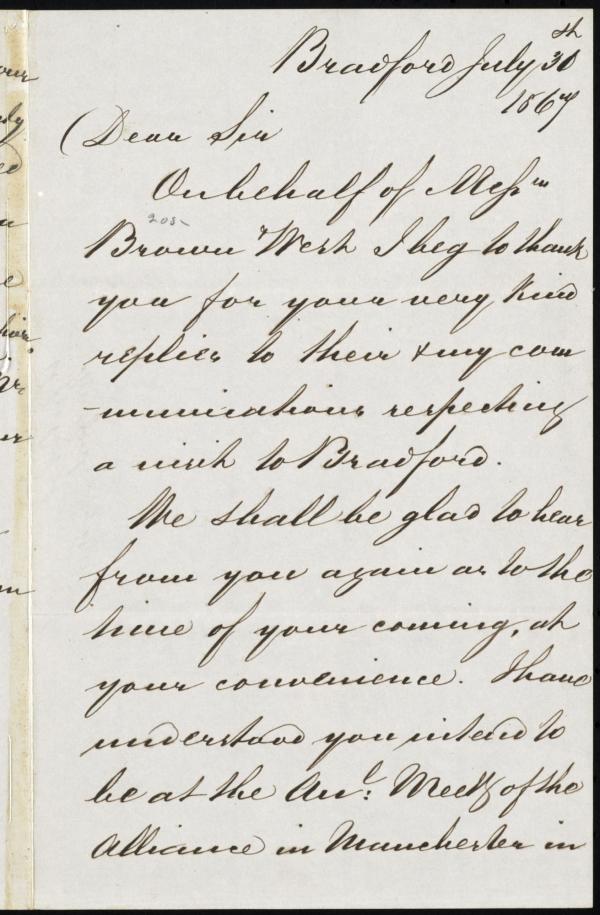 Bradford July 30th
1867
Dear Sir
On behalf of Messrs
Brown & West I beg to thank
you for your very kind
replies to their & my com
-munications respecting
a visit to Bradford.
We shall be glad to hear
from you again as to the
time of your coming, at
your convenience. I have
understood you intend to
be at the Anl: Meetg of the
Alliance in Manchester in